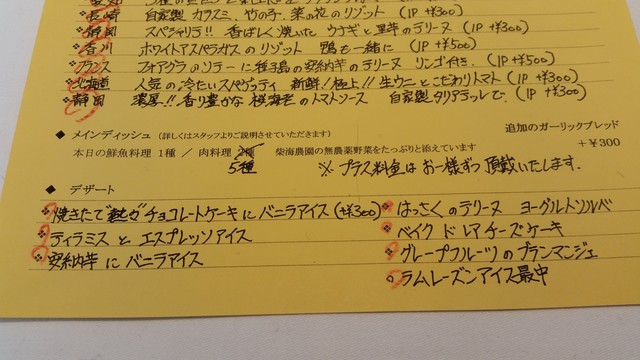 長崎 自家製カラスミ、竹の子、菜の花のリゾット (1P +¥300)
静岡 スペシャリテ!! 香ばしく焼いたウナギと里芋のテリーヌ (1P +¥300)
香川 ホワイトアスパラガスのリゾット 鴨も一緒に (1P +¥500)
フランス フォアグラのソテーに種子島の安納芋のテリーヌ リンゴ付き. (1P +¥500)
北海道 人気の冷たいスパゲティ 新鮮!極上!! 生ウニとこだわりトマト (1P +¥300)
静岡 濃厚!! 香り豊かな桜海老のトマトソース 自家製タリアテッレで. (1P +¥300)
◆ メインディッシュ (詳しくはスタッフよりご説明させていただきます)
追加のガーリックブレッド
本日の鮮魚料理 1種 / 肉料理 2種 柴海農園の無農薬野菜をたっぷりと添えています
+¥300
5種 ※プラス料金はお一様ずつ頂戴いたします.
◆ デザート
焼きたて"熱々"チョコレートケーキにバニラアイス (+¥300)
はっさくのテリーヌ ヨーグルトソルベ
ティラミスとエスプレッソアイス
ベイクドレアチーズケーキ
安納芋にバニラアイス
グレープフルーツのブランマンジェ
ラムレーズンアイス最中